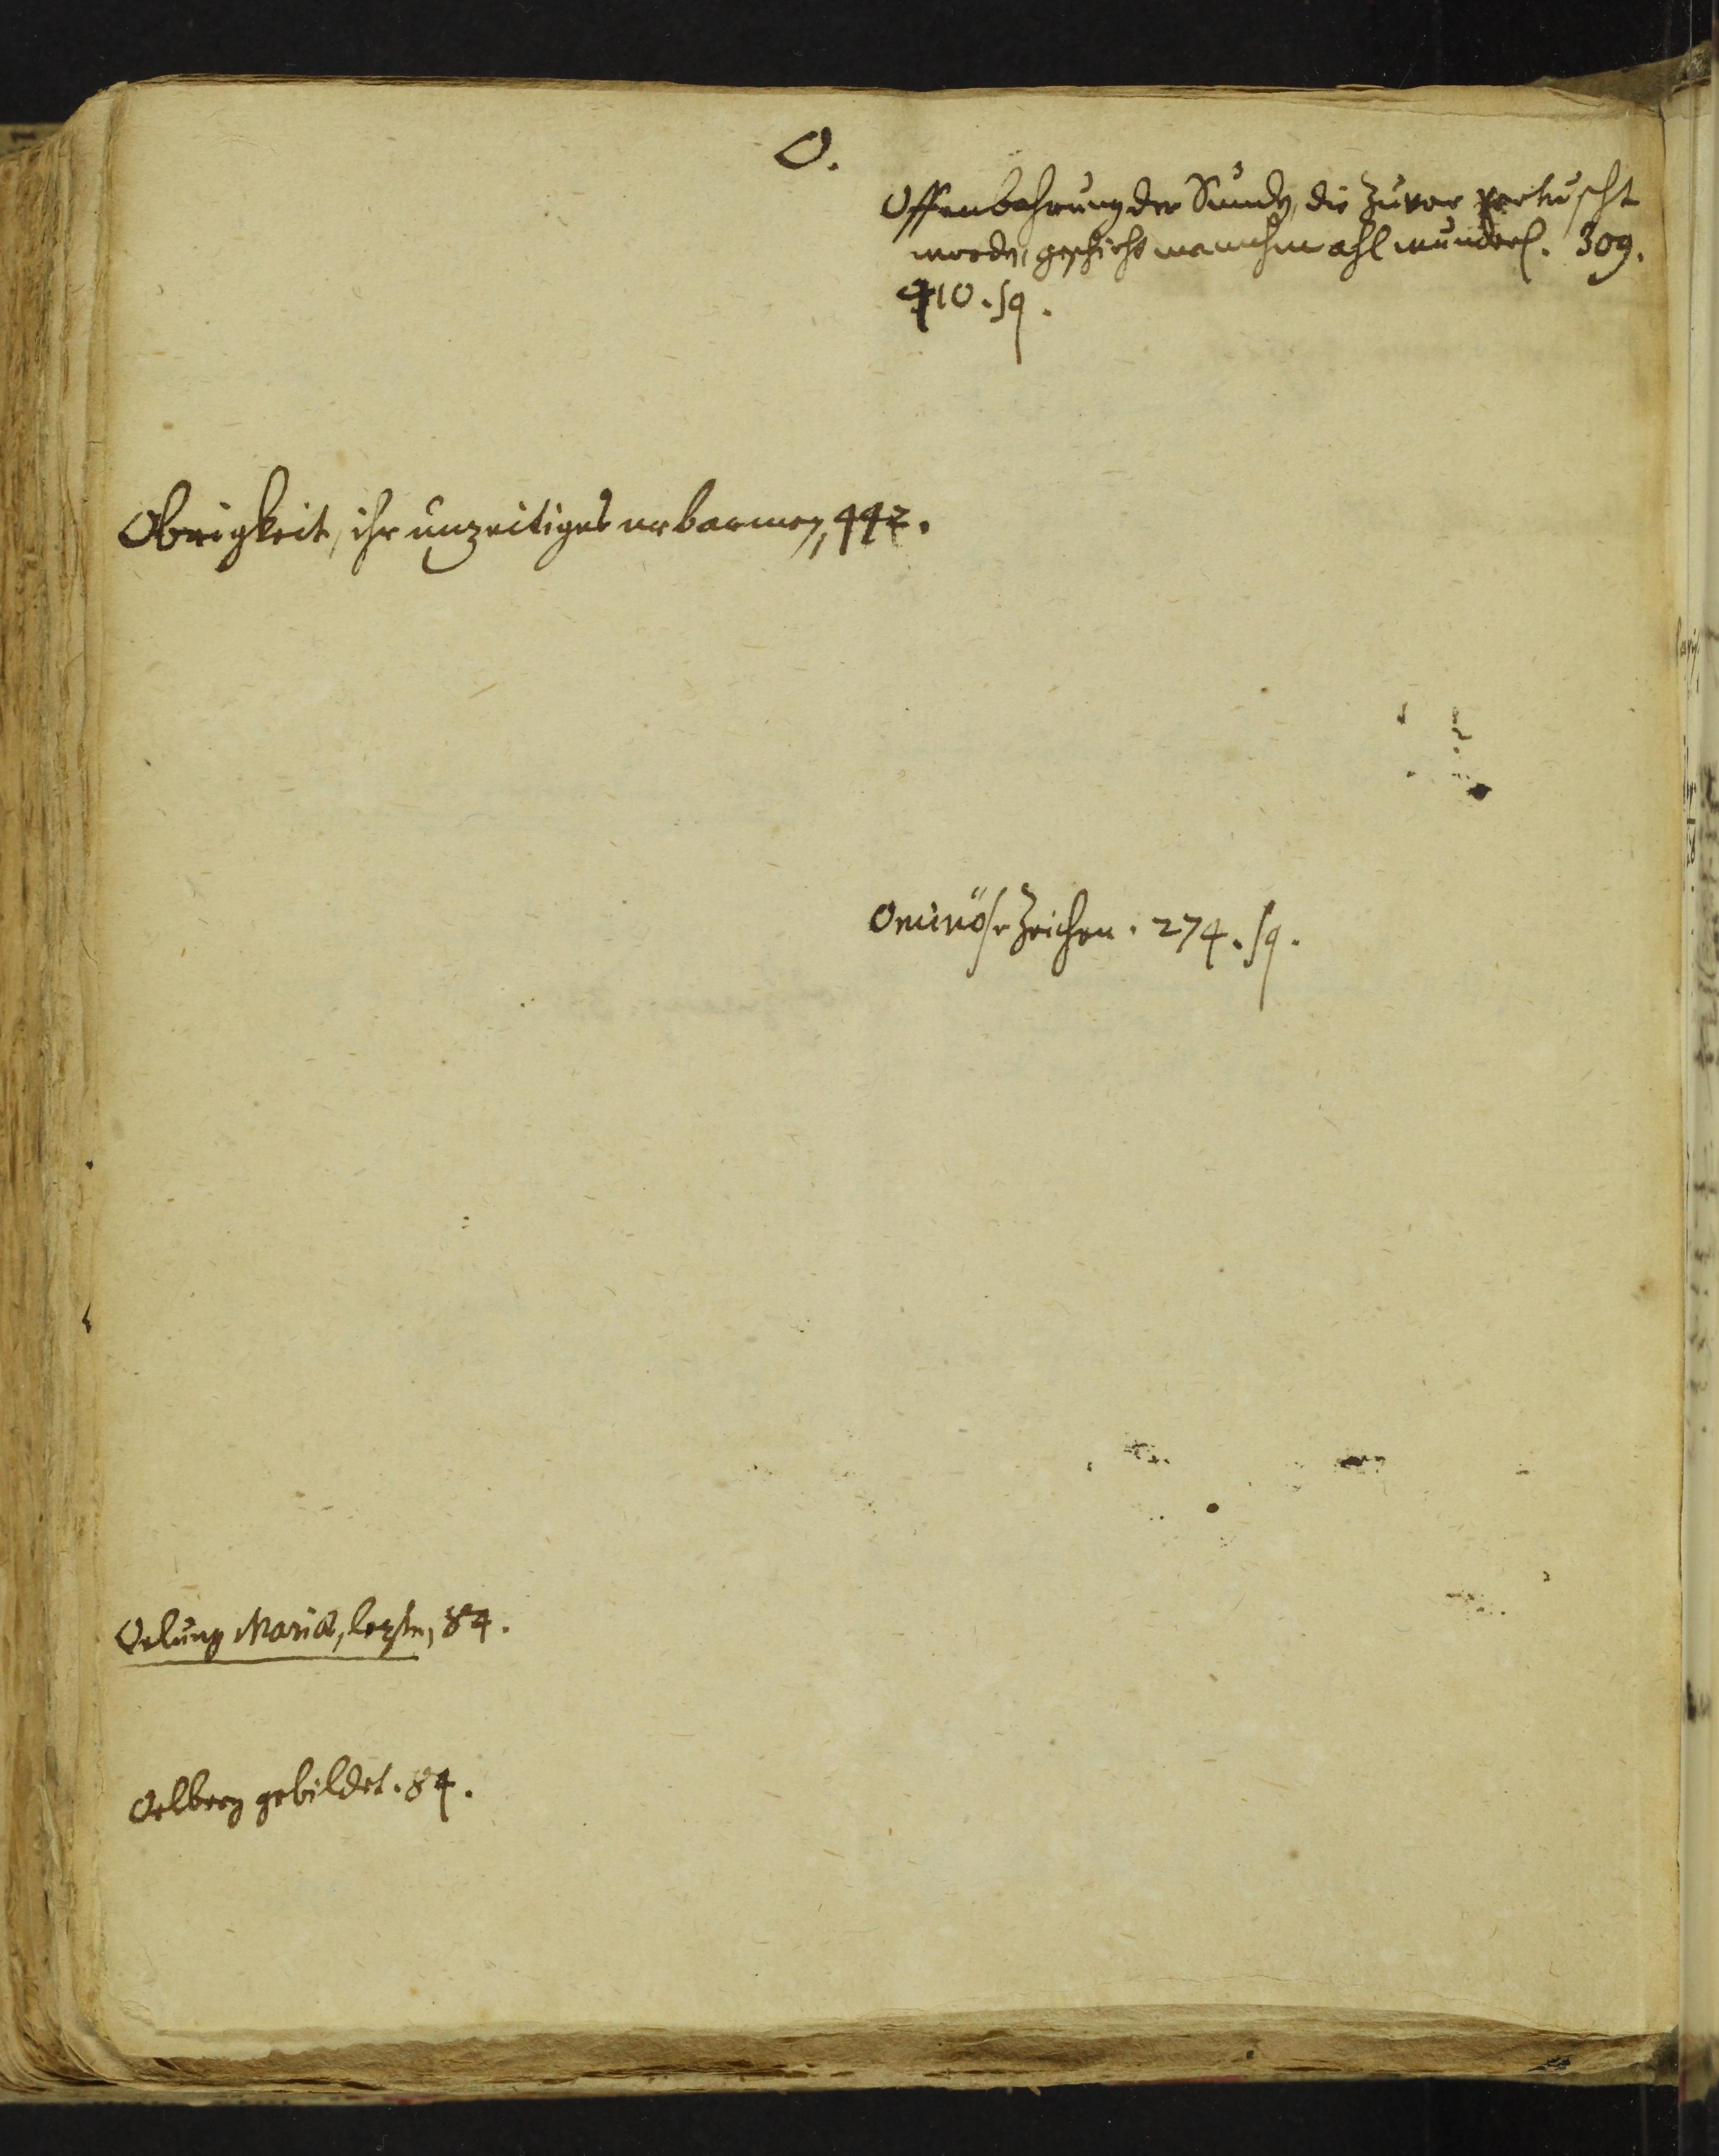 O.
Offenbahrung der Sünden, die zuvor vertuscht
worden, geschieht manchmahl wunderl. 309.
410. sq.
Obrigkeit, ihr unzeitiges erbarmen, 442.
Ominöse Zeichen. 274. sq.
Oelung Mariä, lezte, 84.
Oelberg gebildet. 84.